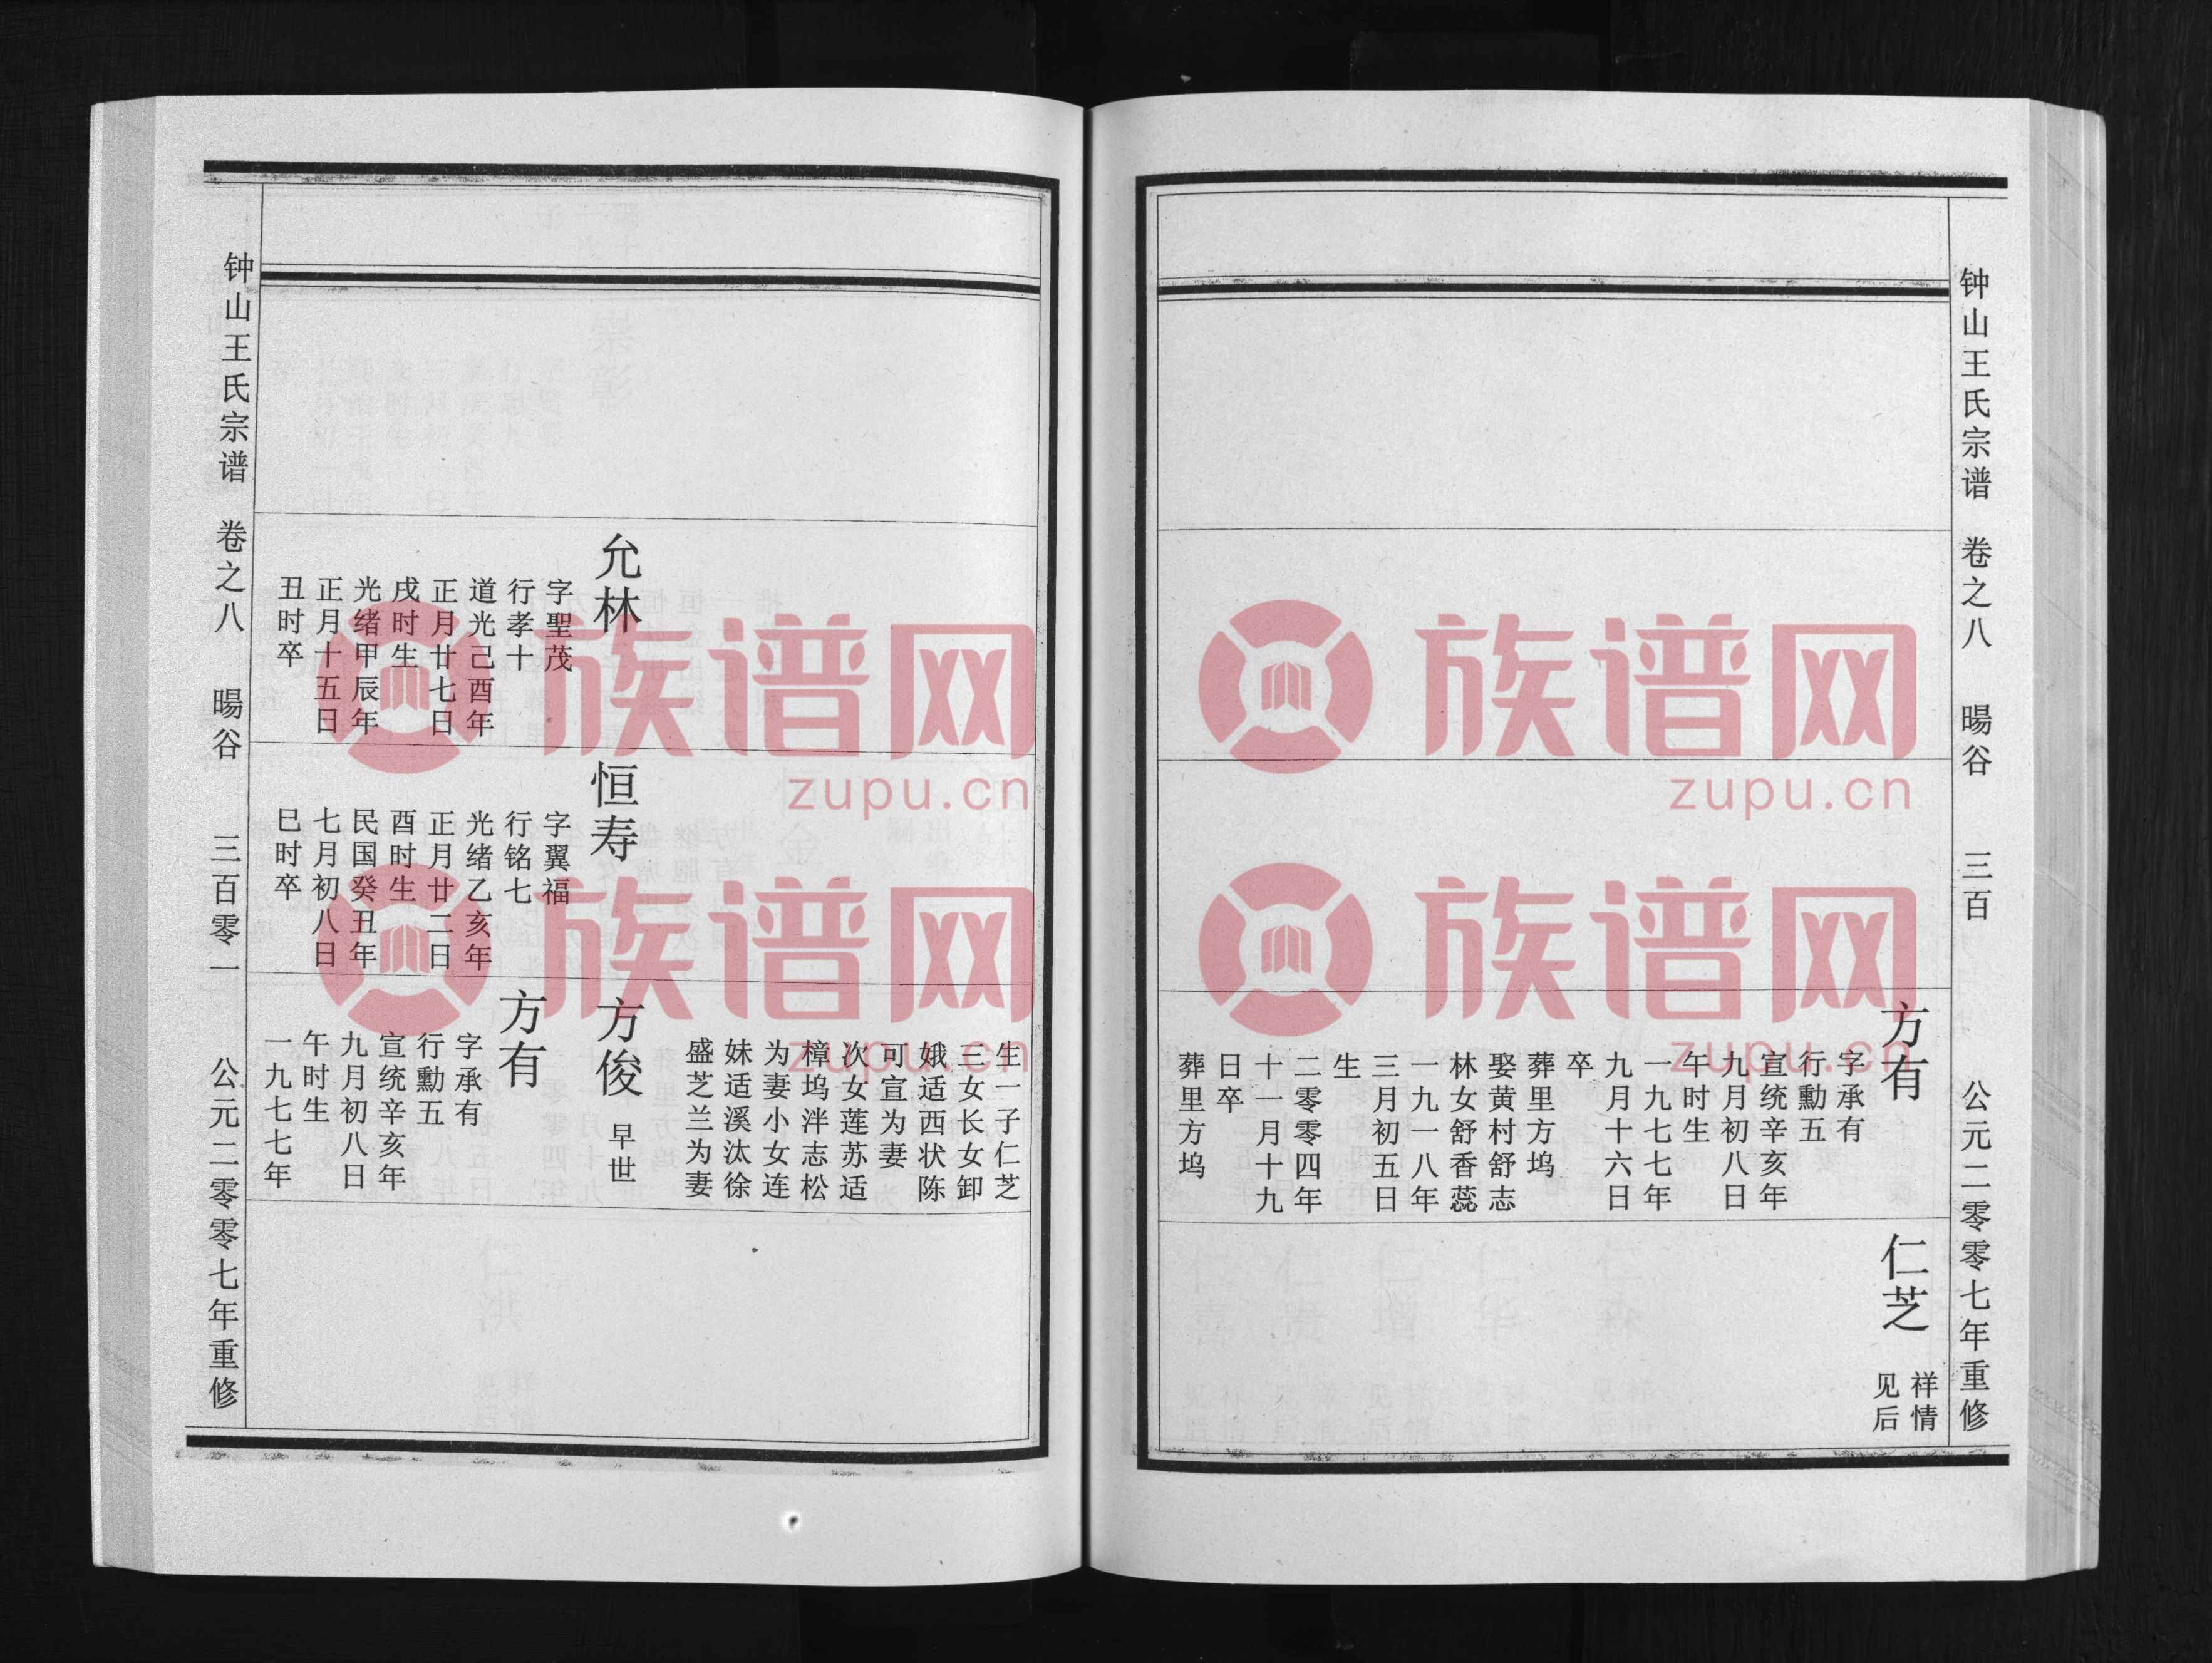 钟山王氏宗谱 卷之八 暘谷 三百 公元二零零七年重修
方有
字承有
行勳五
宣统辛亥年
九月初八日
午时生
一九七七年
九月十六日
卒
葬里方坞
娶黄村舒志
林女舒香蕊
一九一八年
三月初五日
生
二零零四年
十一月十九
日卒
葬里方坞
仁芝
祥情
见后
生一子仁芝
三女长女卸
娥适西状陈
可宣为妻
次女莲苏适
樟坞泮志松
为妻小女连
妹适溪汰徐
盛芝兰为妻
允林
字聖茂
行孝十
道光己酉年
正月廿七日
戌时生
光绪甲辰年
正月十五日
丑时卒
恒寿
字翼福
行铭七
光绪乙亥年
正月廿二日
酉时生
民国癸丑年
七月初八日
巳时卒
方俊 早世
方有
字承有
行勳五
宣统辛亥年
九月初八日
午时生
一九七七年
钟山王氏宗谱 卷之八 暘谷 三百零一 公元二零零七年重修
族谱网
zupu.cn
族谱网
zupu.cn
族谱网
zupu.cn
族谱网
zupu.cn